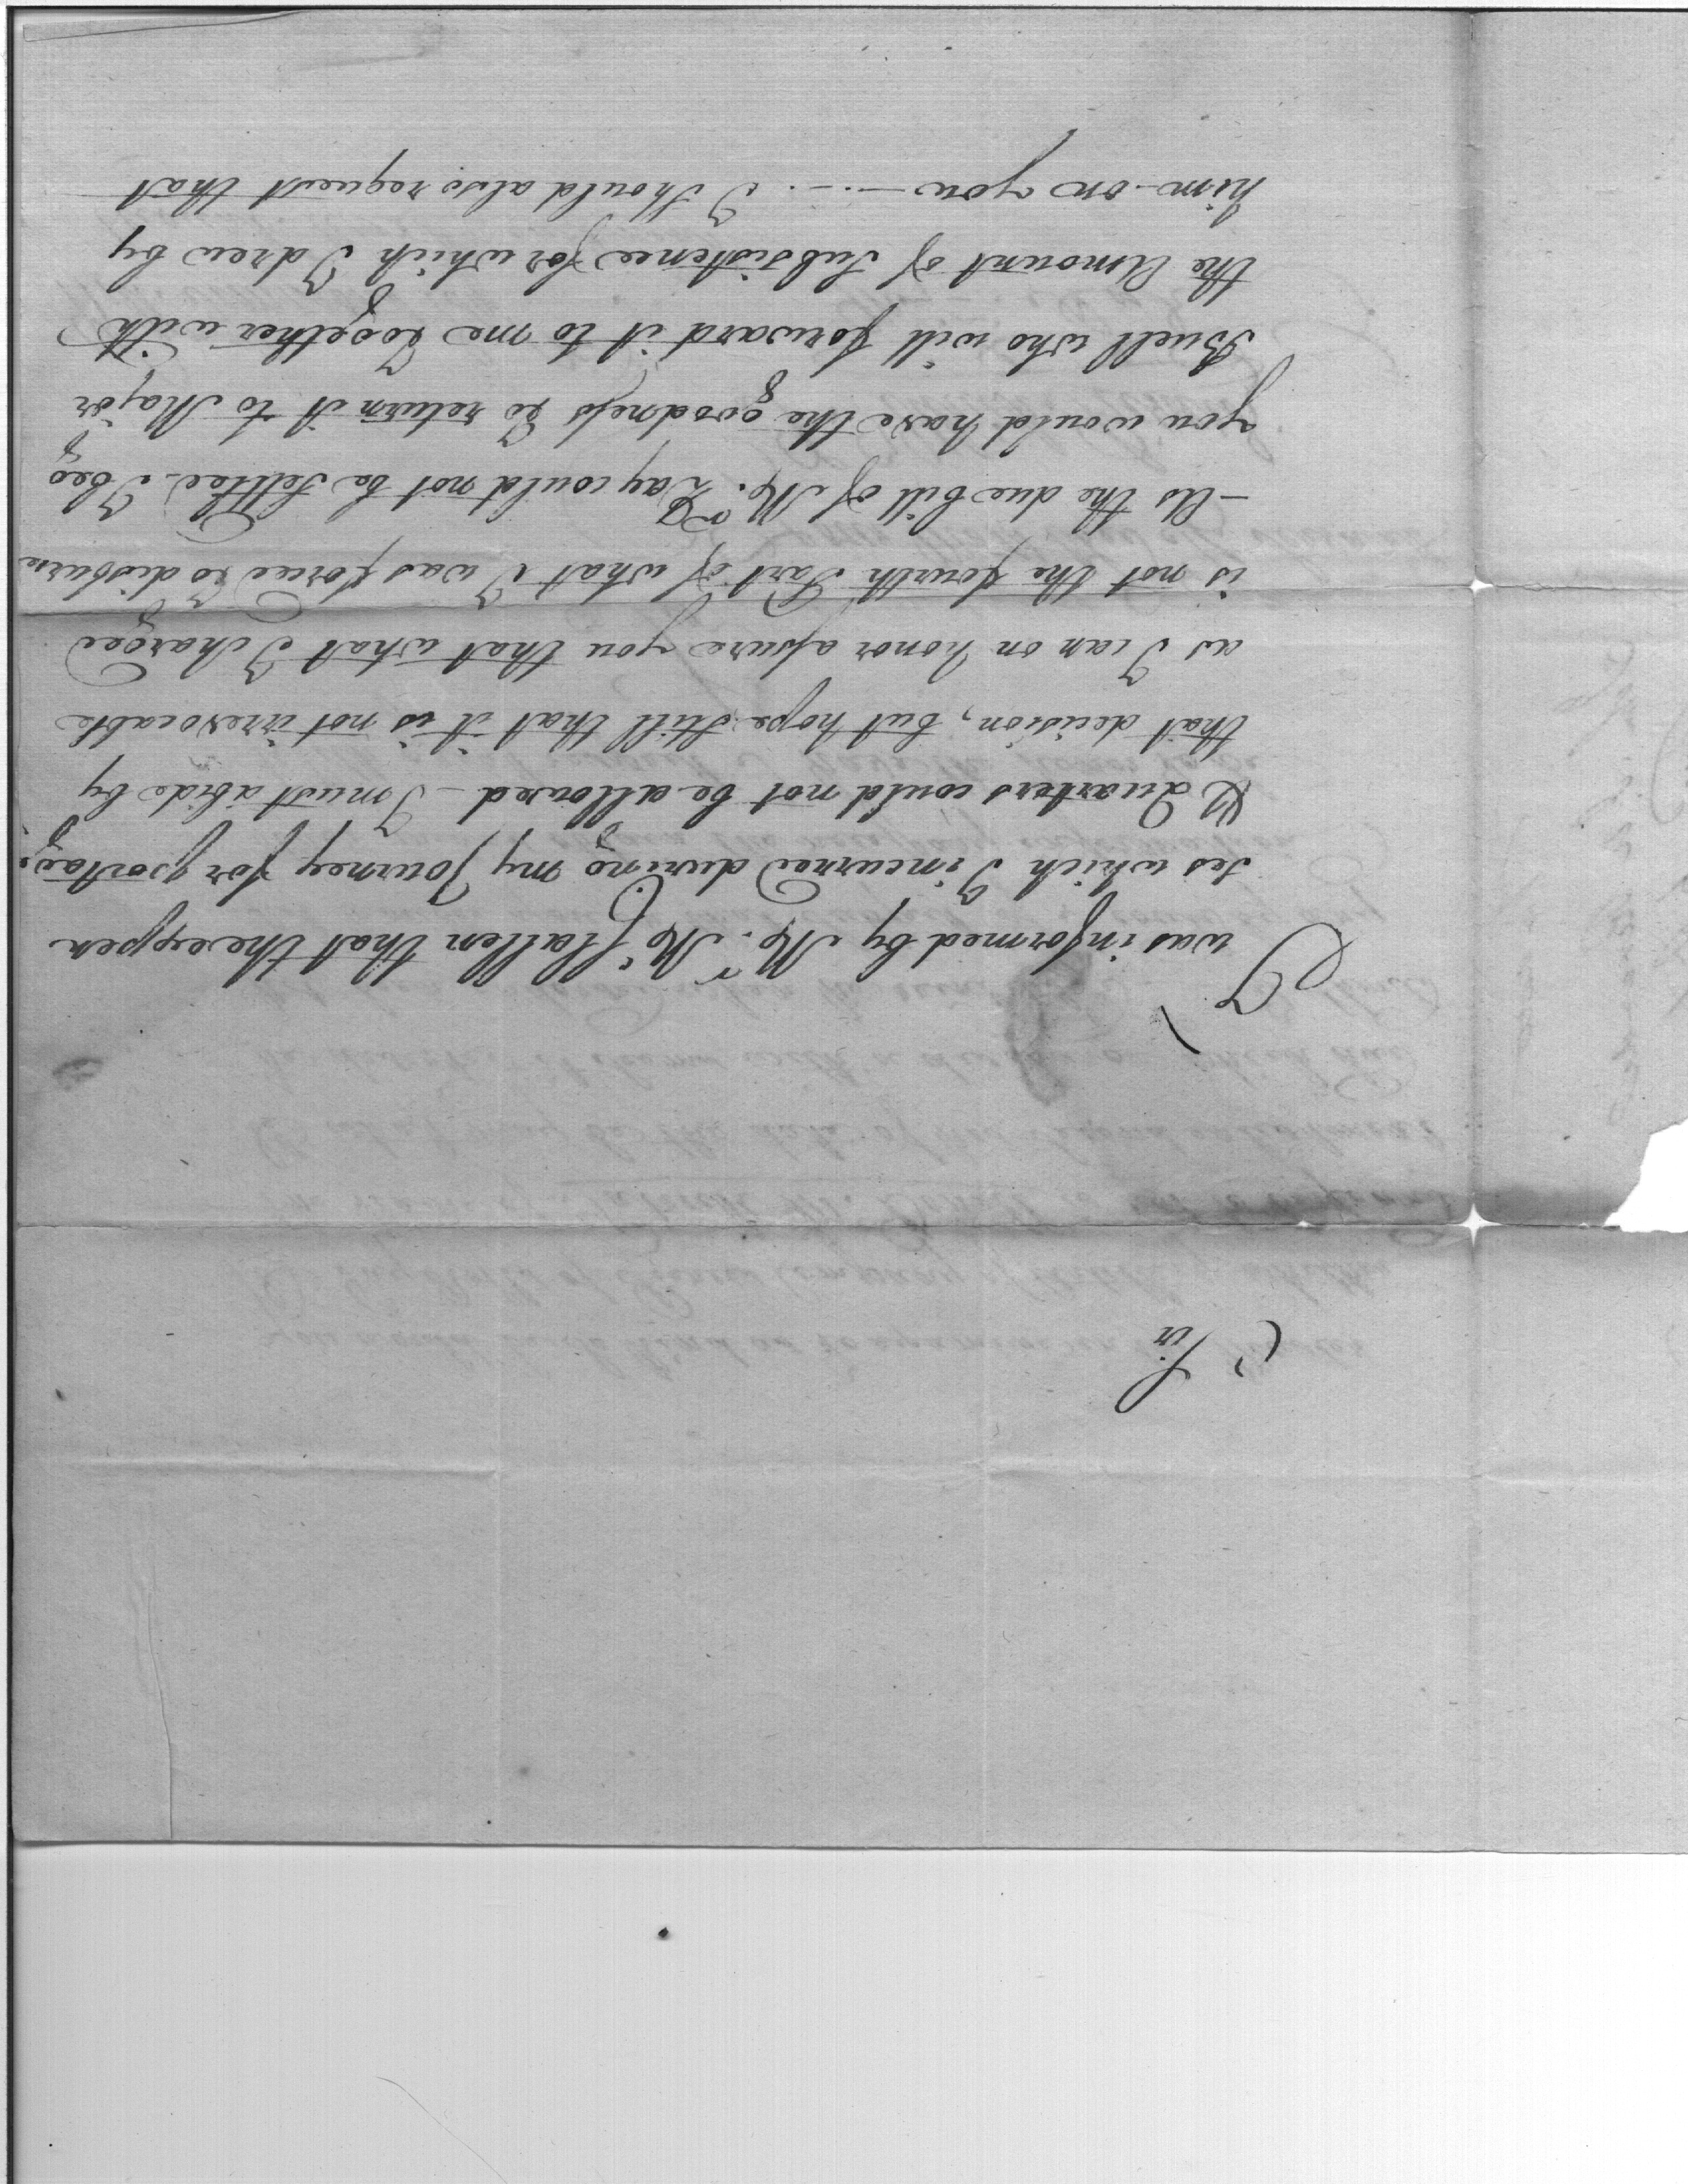 Sir
I was informed by Mr. McHallen that the expen
ses which I incurred during my Journey for portage
& Quarters could not be allowed - I must abide by
that decision, but hope still that it is not irrevocable
as I can on honor assure you that what I charged
is not the fourth Part of what I was forced to disburse
- As the due bill of Mr. Day could not be Settled. I beg
you would have the goodness to return it to Major
Buell who will forward it to me together with
the Amount of Subsistence for which I drew by
him on you - I should also request that